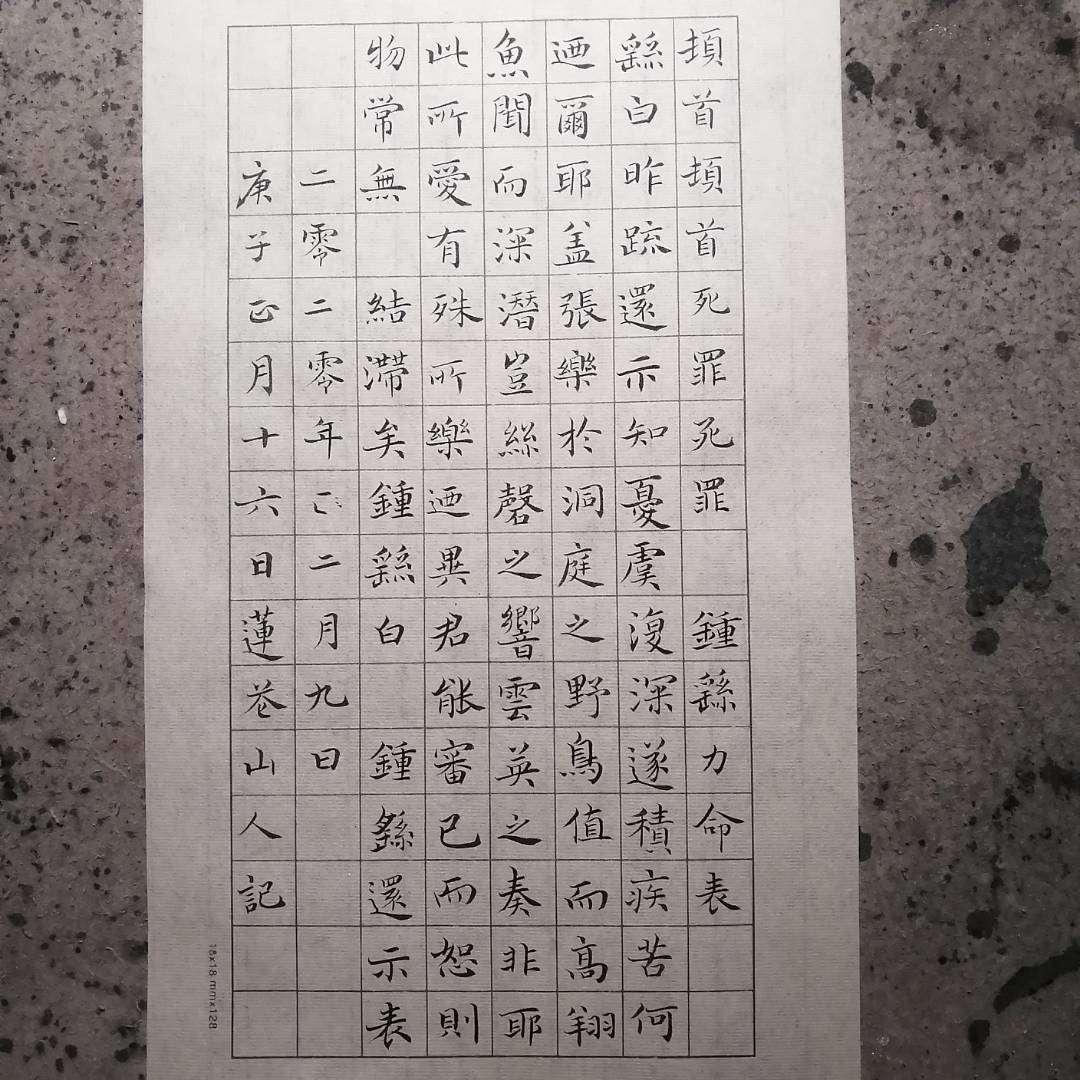 頓首頓首死罪死罪 鍾繇力命表
繇白昨疏還示知憂虞復深遂積疾苦何
迺爾耶盖張樂於洞庭之野鳥值而高翔
魚聞而深潛豈絲磬之響雲英之奏非耶
此所愛有殊所樂迺異君能審己而恕則
物常無 結滯矣鍾繇白 鍾繇還示表
二零二零年二月九日
庚子正月十六日蓮巷山人記
18x18 mmx128